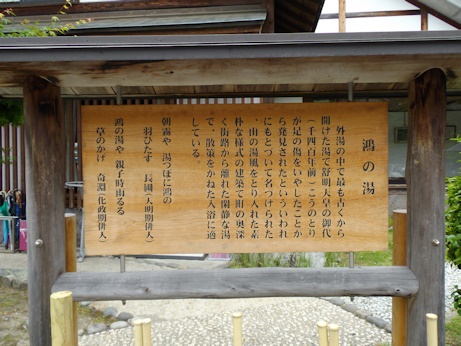 鴻の湯
外湯の中で最も古くから
開けた湯で舒明天皇の御代
（千四百年前）こうのとり
が足の傷をいやしたことか
ら発見されたといういわれ
にもとづいて名づけられた
、山の湯風をとり入れた素
朴な様式の建築で街の奥深
く街路から離れた閑静な湯
で、散策をかねた入浴に適
している。
朝霧や 湯つぼに鴻の
羽ひたす 長圃（天明期俳人）
鴻の湯や 親子時雨るる
草のかげ 奇淵（化政期俳人）